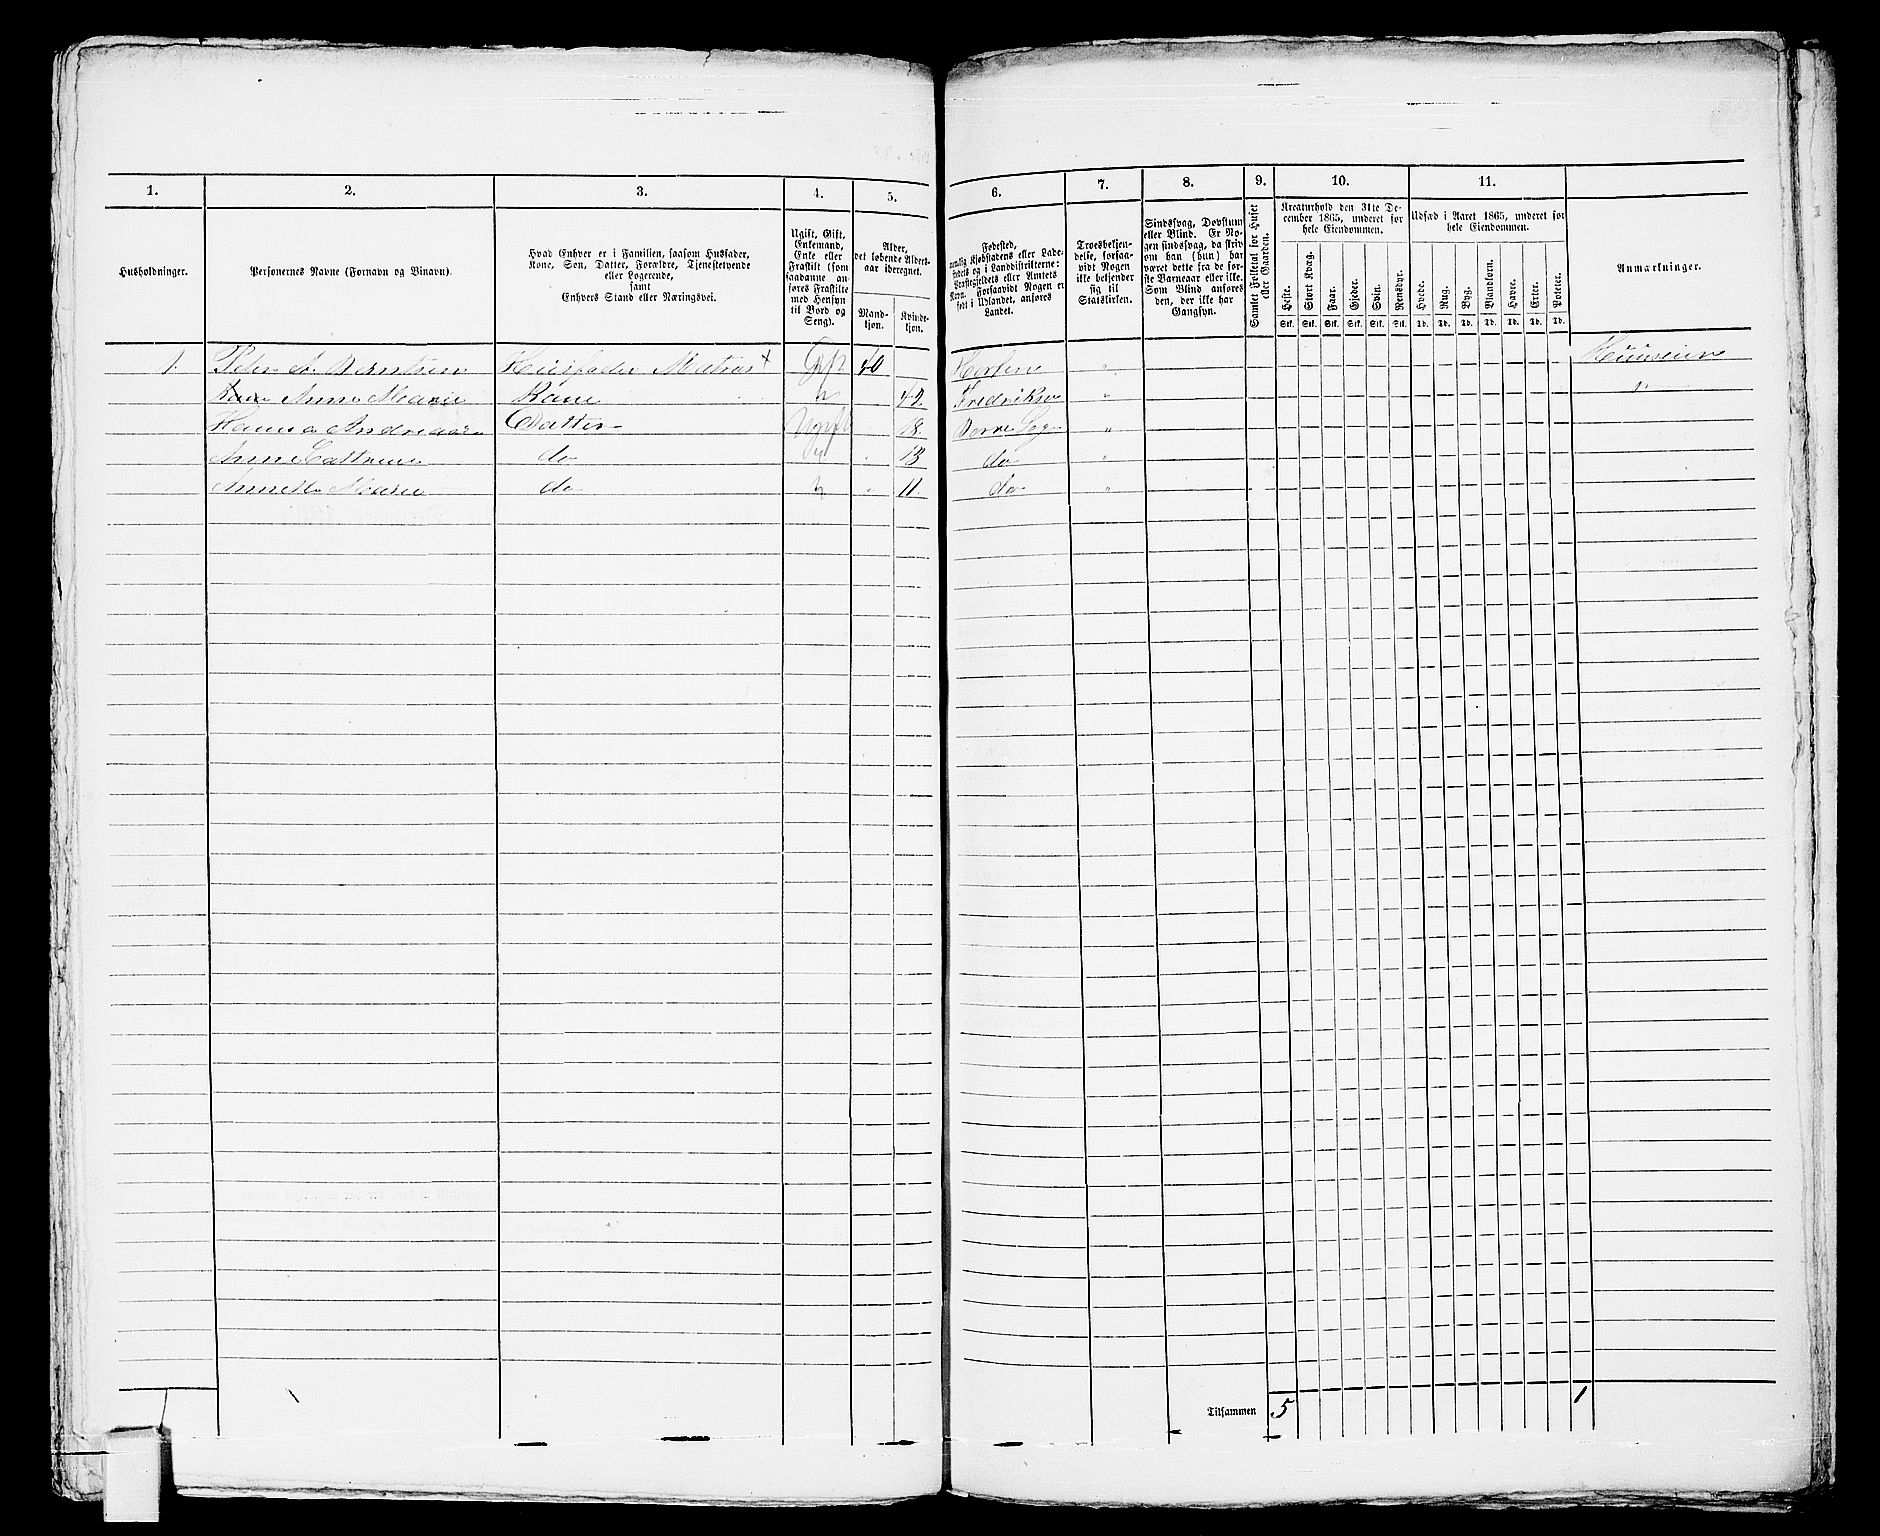 1. 2. 3. 4. 5. 6. 7. 8. 9. 10. 11.
Husholdninger.
Personernes Navne (Fornavn og Binavn).
Hvad Enhver er i Familien, saasom Husfader,
Kone, Søn, Datter, Forældre, Tjenestetyende
eller Logerende,
samt
Enhvers Stand eller Næringsvei.
Ugift, Gift,
Enkemand,
Enke eller
Fraskilt (som
saadanne an-
føres Fraskilte
med Hensyn
til Bord og
Seng).
Alder,
det løbende Alders-
aar iberegnet.
Mand-
kjøn.
Kvinde-
kjøn.
Fødested,
nemlig Kjøbstadens eller Lade-
stedets og i Landdistrikterne:
Præstegjeldets eller Amtets
Navn. Forsaavidt Nogen er
født i Udlandet, anføres
Landet.
Troesbekjen-
delse, forsaa-
vidt Nogen
ikke bekjender
sig til
Statskirken.
Sindssvag, Døvstum
eller Blind. Er No-
gen sindssvag, da skriv
om han (hun) har
været dette fra de før-
ste Barneaar eller ikke.
Som Blind anføres
den, der ikke har
Gangsyn.
Samlet Folketal for Huset
eller Gaarden.
Kreaturhold den 31te De-
cember 1865, underet for
hele Eiendommen.
Heste. Stort Kvæg. Faar. Gjeder. Svin. Rensdyr.
Stk. Stk. Stk. Stk. Stk. Stk.
Udsæd i Aaret 1865, underet for
hele Eiendommen.
Hvede. Rug. Byg. Blandkorn. Havre. Erter. Poteter.
Td. Td. Td. Td. Td. Td. Td.
Anmærkninger.
1. Peder A. Berntsen Huusfader Matros + Gift 40 Horten "
Anne Marie Kone " 42 Fredriksv "
Hanna Andrea Datter Ugift 18 Borre Sogn "
Anne Cattrine do " 13 do "
Annette Marie do " 11 do "
Tilsammen 5 1